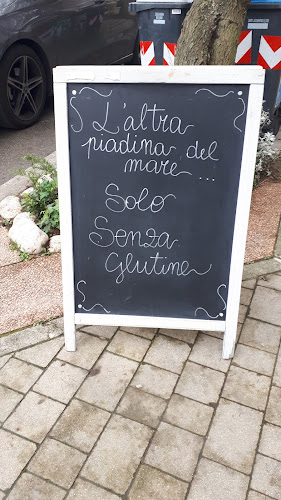 L'altra
piadina del
mare ...
Solo
Senza
Glutine